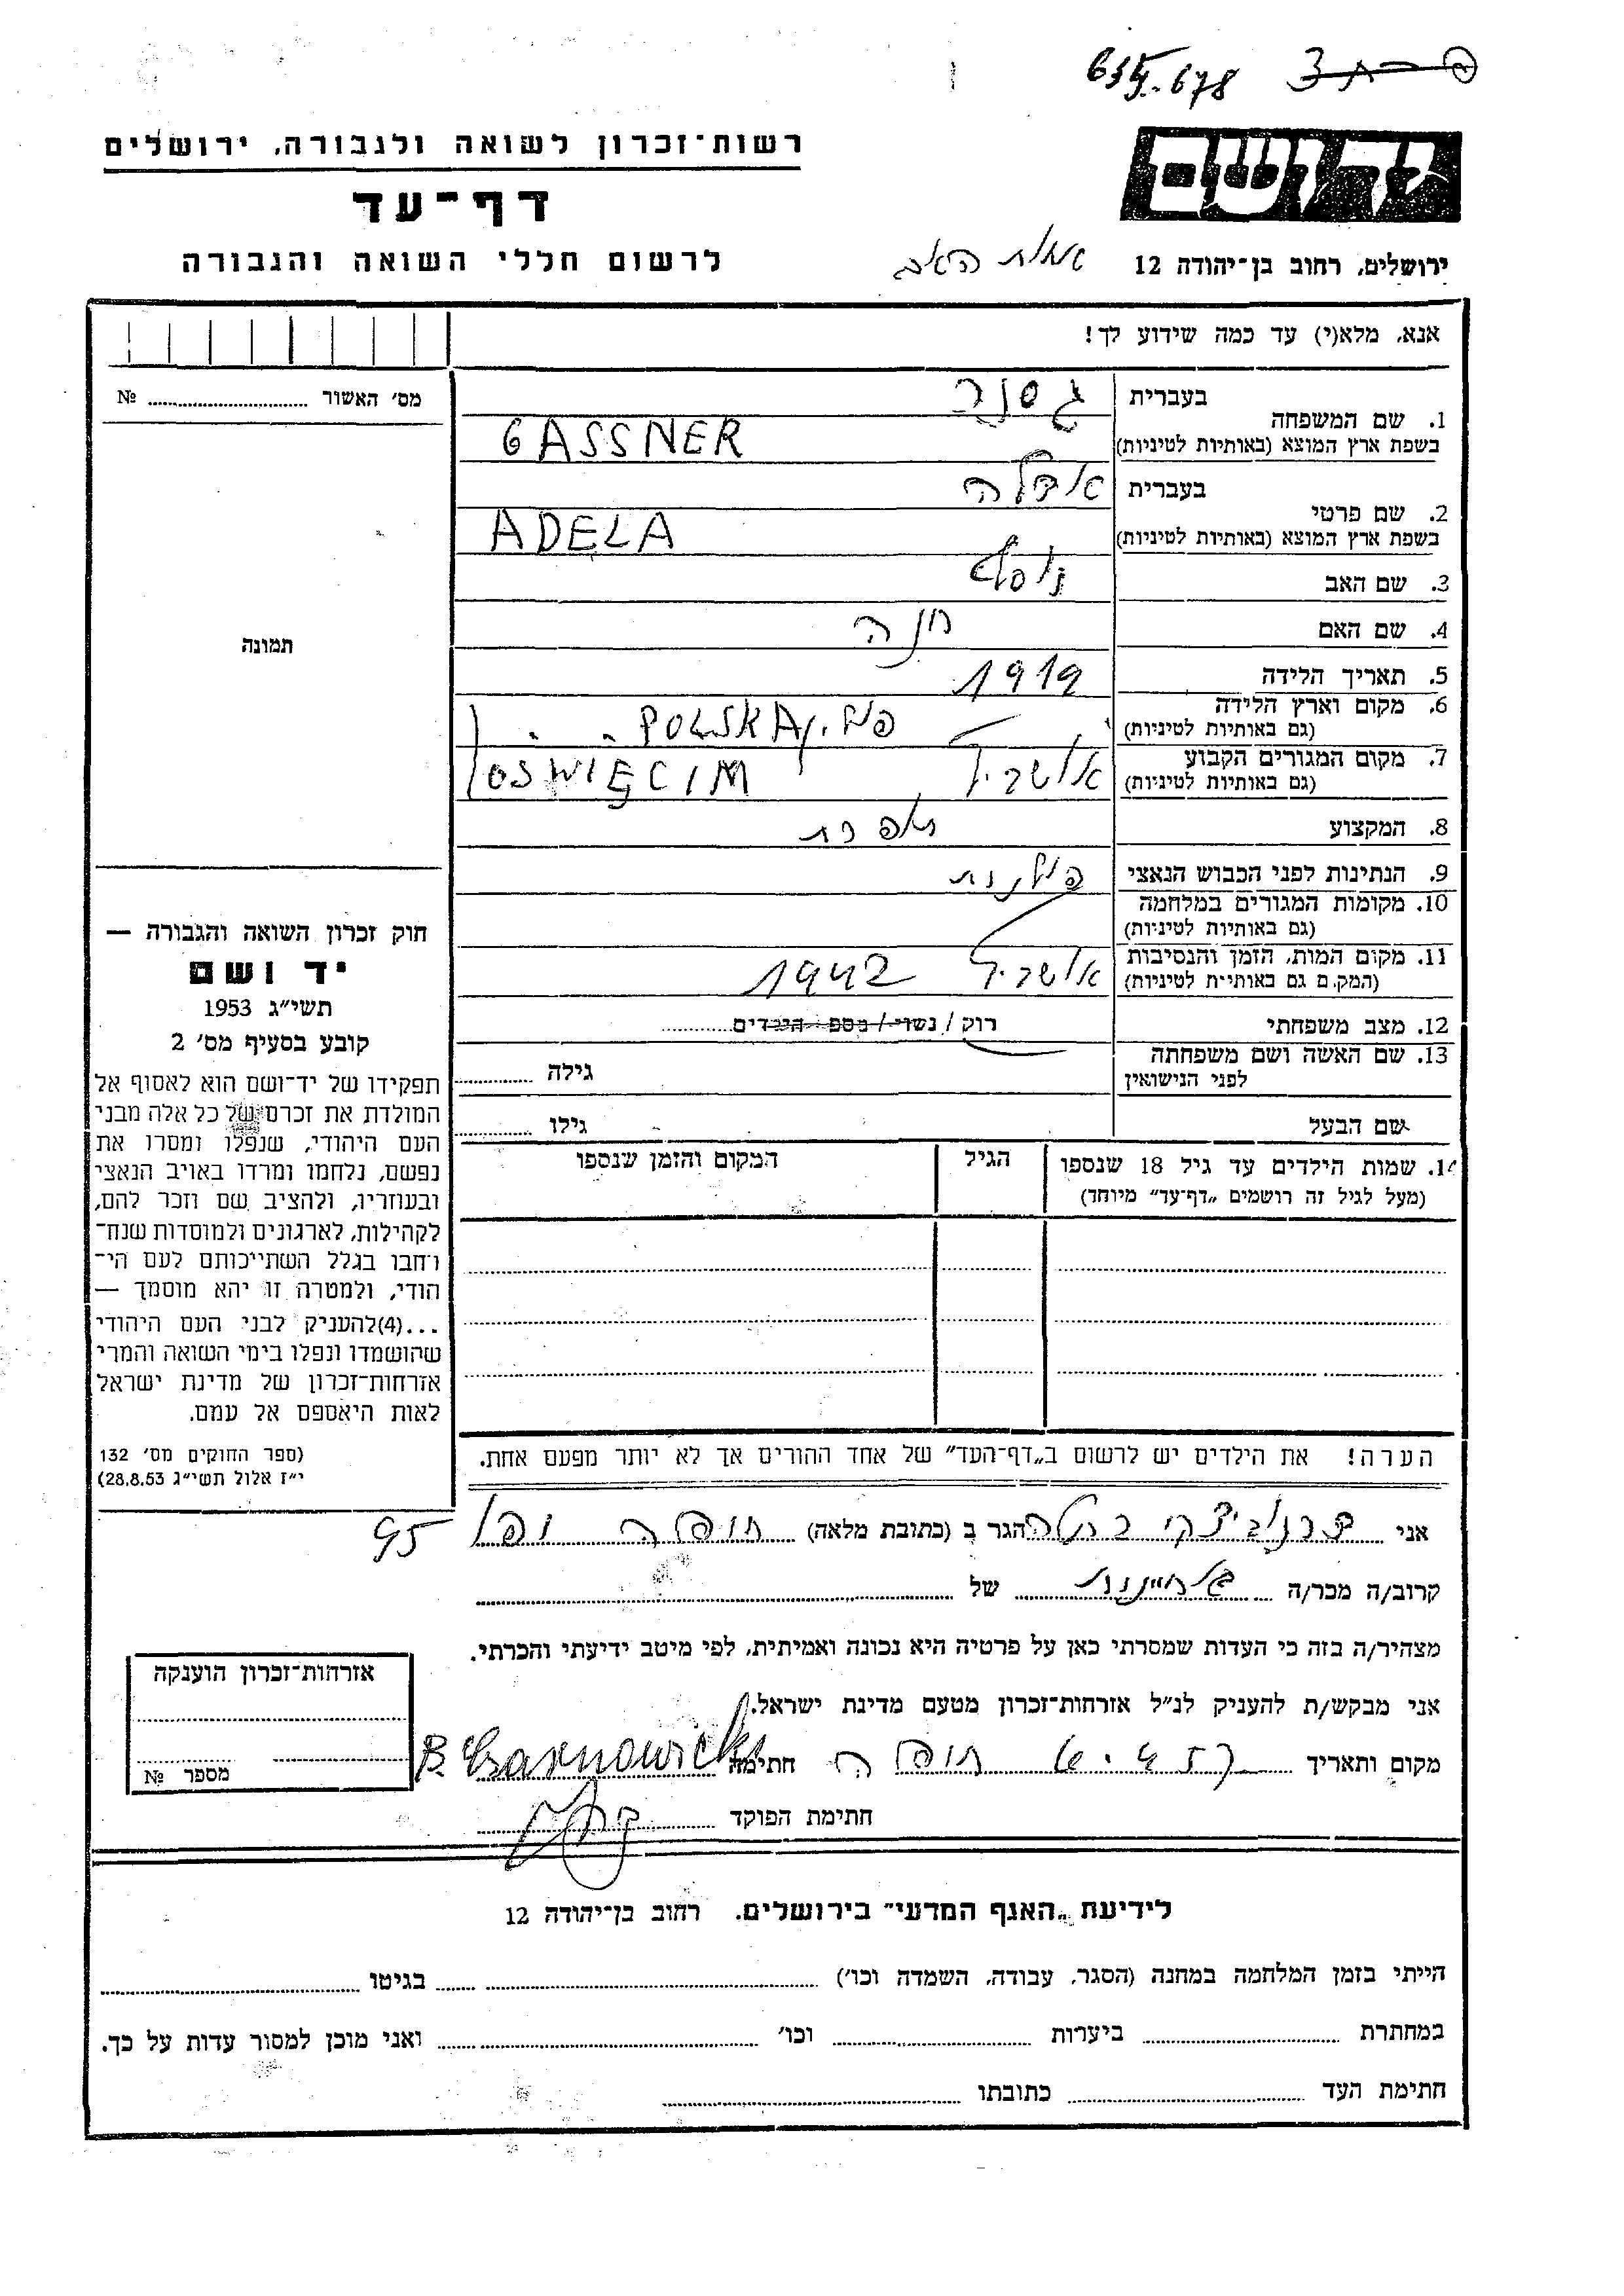 635-678
רשות-זכרון לשואה ולגבורה, ירושלים
יד ושם
דף-עד
ירושלים, רחוב בן-יהודה 12
לרשום חללי השואה והגבורה
אנא, מלא(י) עד כמה שידוע לך!
מס׳ האשור № 
תמונה
1. שם המשפחה
בעברית גסנר
בשפת ארץ המוצא (באותיות לטיניות) GASSNER
2. שם פרטי
בעברית אדלה
בשפת ארץ המוצא (באותיות לטיניות) ADELA
3. שם האב יוסף
4. שם האם חנה
5. תאריך הלידה 1919
6. מקום וארץ הלידה POLSKA
(גם באותיות לטיניות)
7. מקום המגורים הקבוע OSWIĘCIM
(גם באותיות לטיניות)
8. המקצוע תופרת
9. הנתינות לפני הכבוש הנאצי פולנית
10. מקומות המגורים במלחמה
(גם באותיות לטיניות)
11. מקום המות, הזמן והנסיבות 1942
(המקום גם באותיות לטיניות)
12. מצב משפחתי רוק / נשוי / מספר הילדים
13. שם האשה ושם משפחתה גילה
לפני הנישואין
שם הבעל גילו
14. שמות הילדים עד גיל 18 שנספו הגיל המקום והזמן שנספו
(מעל לגיל זה רושמים „דף-עד״ מיוחד)
חוק זכרון השואה והגבורה —
יד ושם
תשי״ג 1953
קובע בסעיף מס׳ 2
תפקידו של יד-ושם הוא לאסוף אל
המולדת את זכרם של כל אלה מבני
העם היהודי, שנפלו ומסרו את
נפשם, נלחמו ומרדו באויב הנאצי
ובעוזריו, ולהציב שם וזכר להם,
לקהילות, לארגונים ולמוסדות שנח-
רבו בגלל השתייכותם לעם הי-
הודי, ולמטרה זו יהא מוסמך —
...(4)להעניק לבני העם היהודי
שהושמדו ונפלו בימי השואה והמרי
אזרחות-זכרון של מדינת ישראל
לאות היאספם אל עמם.
(ספר החוקים מס׳ 132
י״ז אלול תשי״ג 28.8.53)
הערה! את הילדים יש לרשום ב„דף-העד״ של אחד ההורים אך לא יותר מפעם אחת.
אני הגר ב (כתובת מלאה) חיפה 95
קרוב/ה מכר/ה של
מצהיר/ה בזה כי העדות שמסרתי כאן על פרטיה היא נכונה ואמיתית, לפי מיטב ידיעתי והכרתי.
אני מבקש/ת להעניק לנ״ל אזרחות-זכרון מטעם מדינת ישראל.
מקום ותאריך חיפה חתימה
חתימת הפוקד
אזרחות-זכרון הוענקה
מספר №
לידיעת „האגף המדעי״ בירושלים, רחוב בן-יהודה 12
הייתי בזמן המלחמה במחנה (הסגר, עבודה, השמדה וכו׳) בגיטו
במחתרת ביערות וכו׳ ואני מוכן למסור עדות על כך.
חתימת העד כתובתו